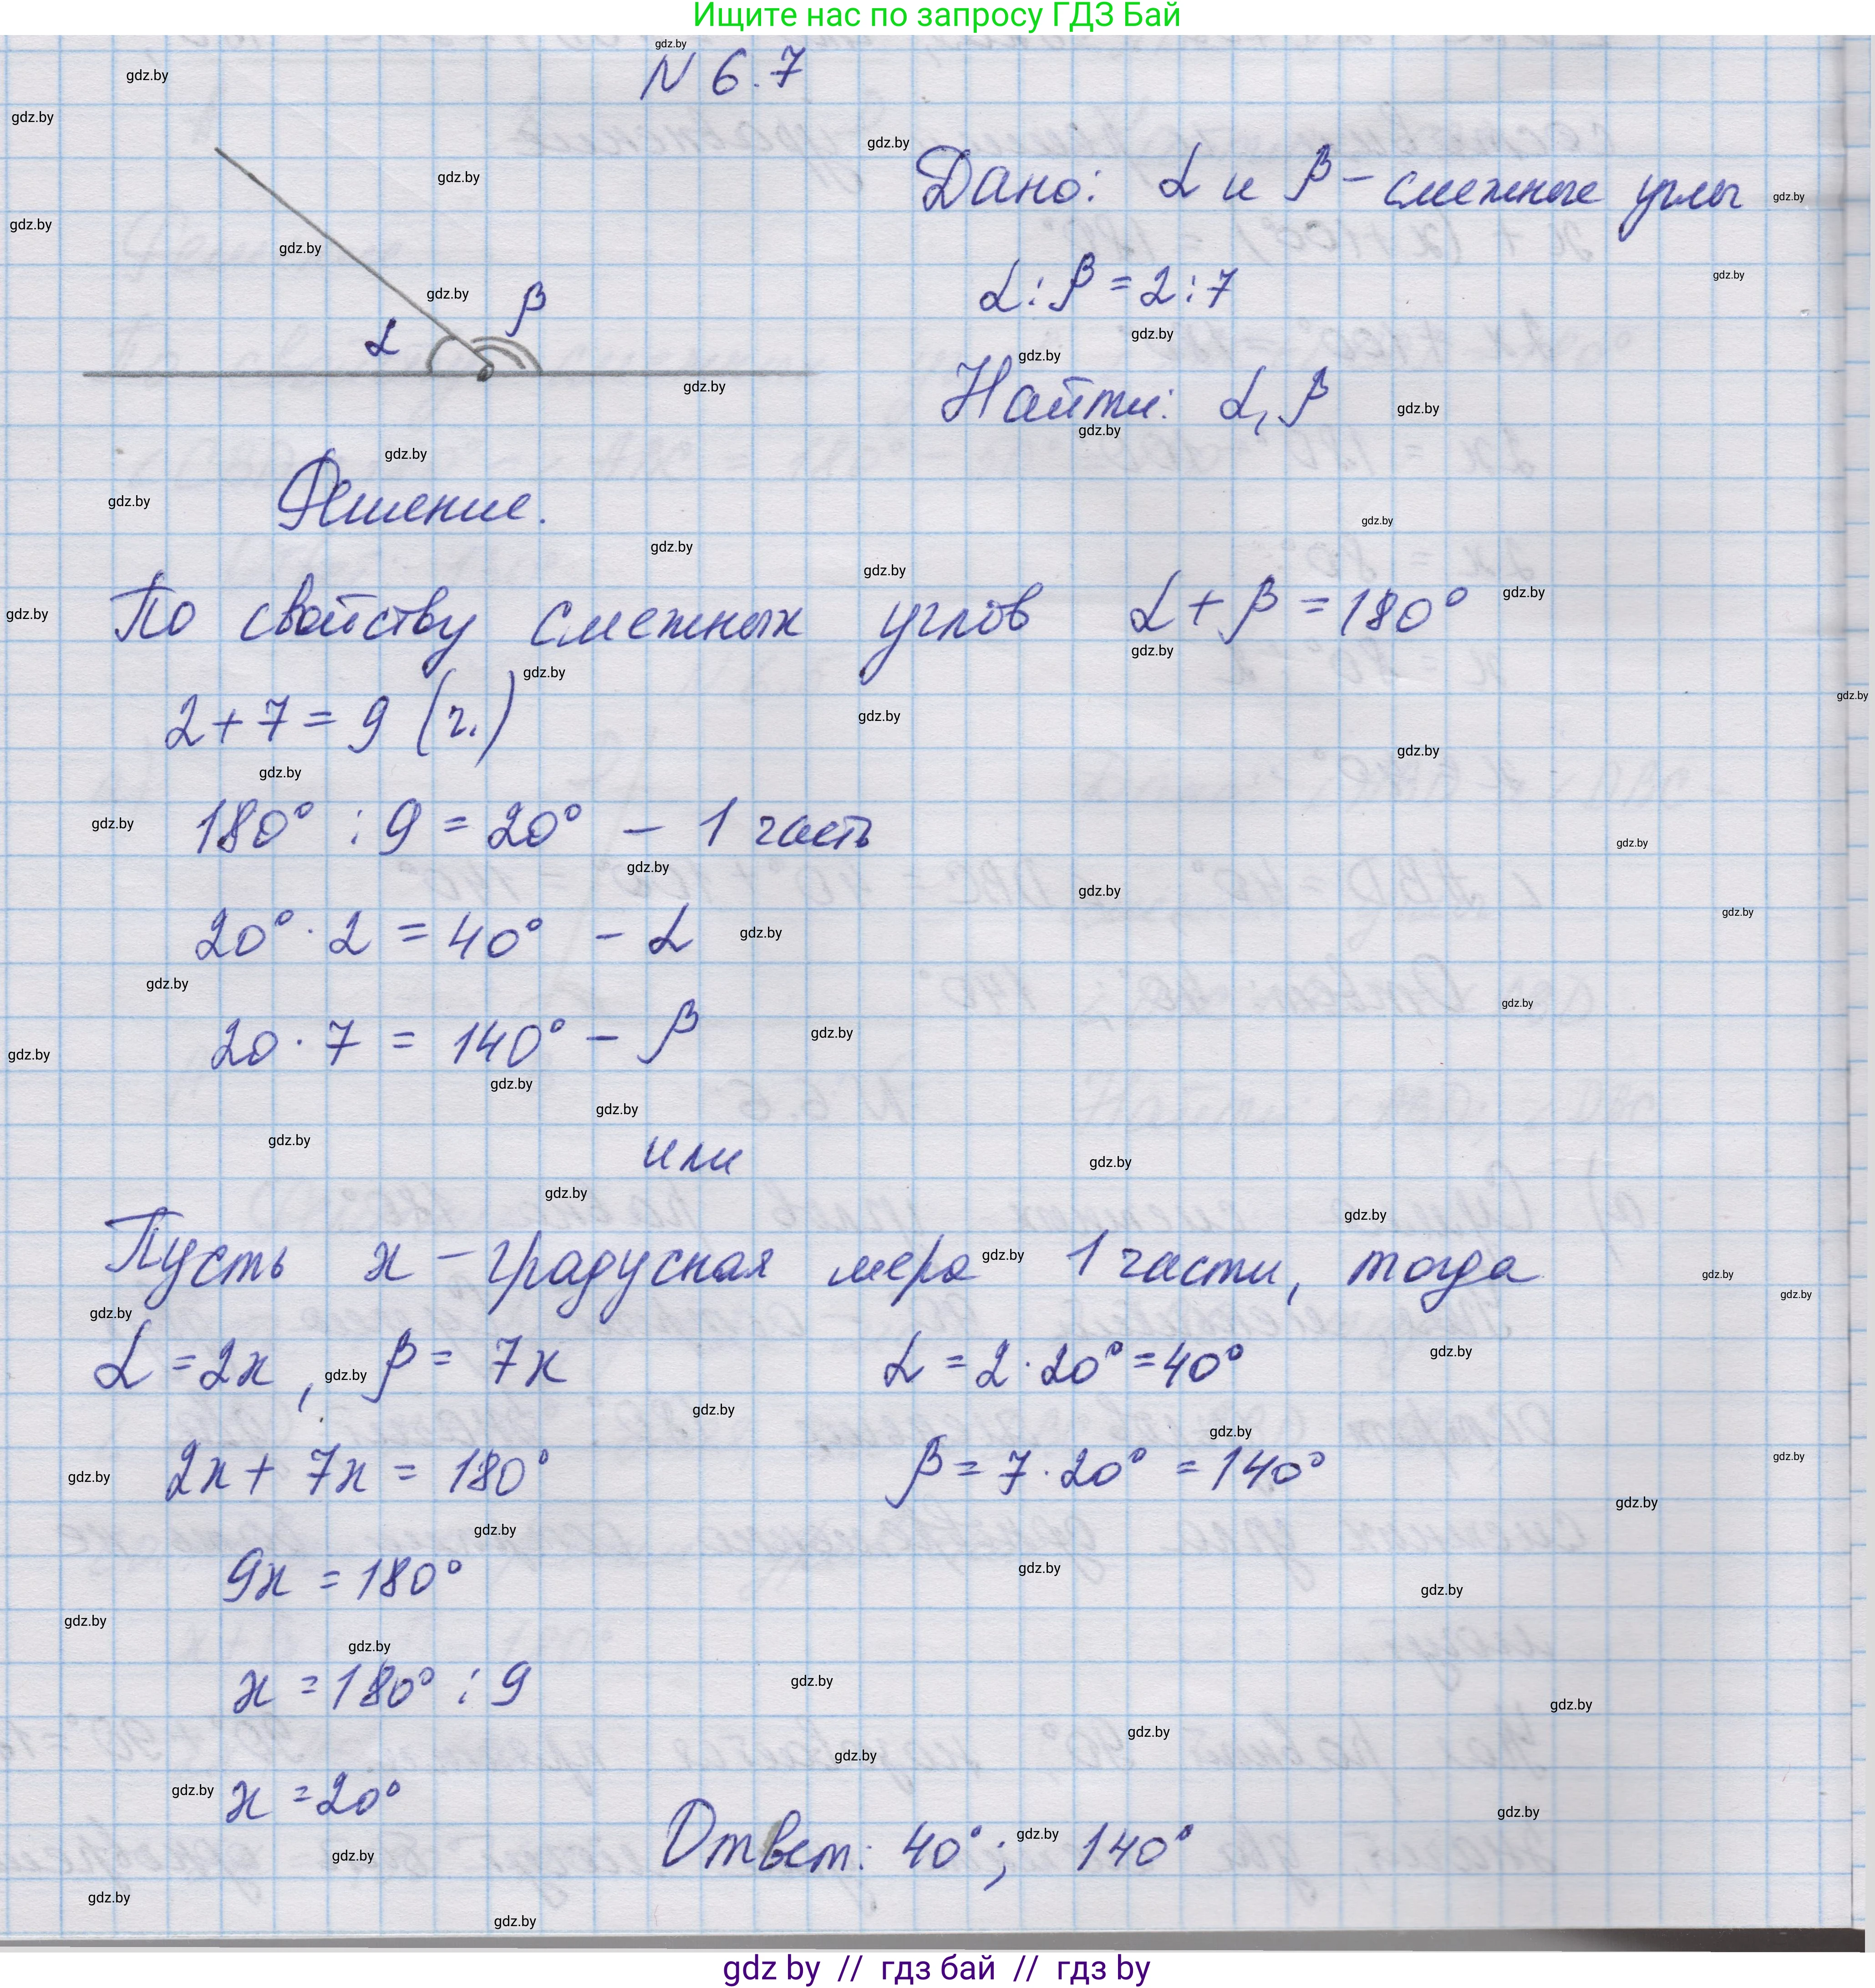 Ищите нас по запросу ГДЗ Бай
N 6.7
Дано: α и β – смежные углы
α : β = 2 : 7
Найти: α, β
α
β
Решение.
По свойству смежных углов α + β = 180°
2 + 7 = 9 (ч.)
180° : 9 = 20° – 1 часть
20° · 2 = 40° – α
20 · 7 = 140° – β
или
Пусть x – градусная мера 1 части, тогда
α = 2x, β = 7x
2x + 7x = 180°
9x = 180°
x = 180° : 9
x = 20°
α = 2 · 20° = 40°
β = 7 · 20° = 140°
Ответ: 40°; 140°
gdz by // гдз бай // гдз by